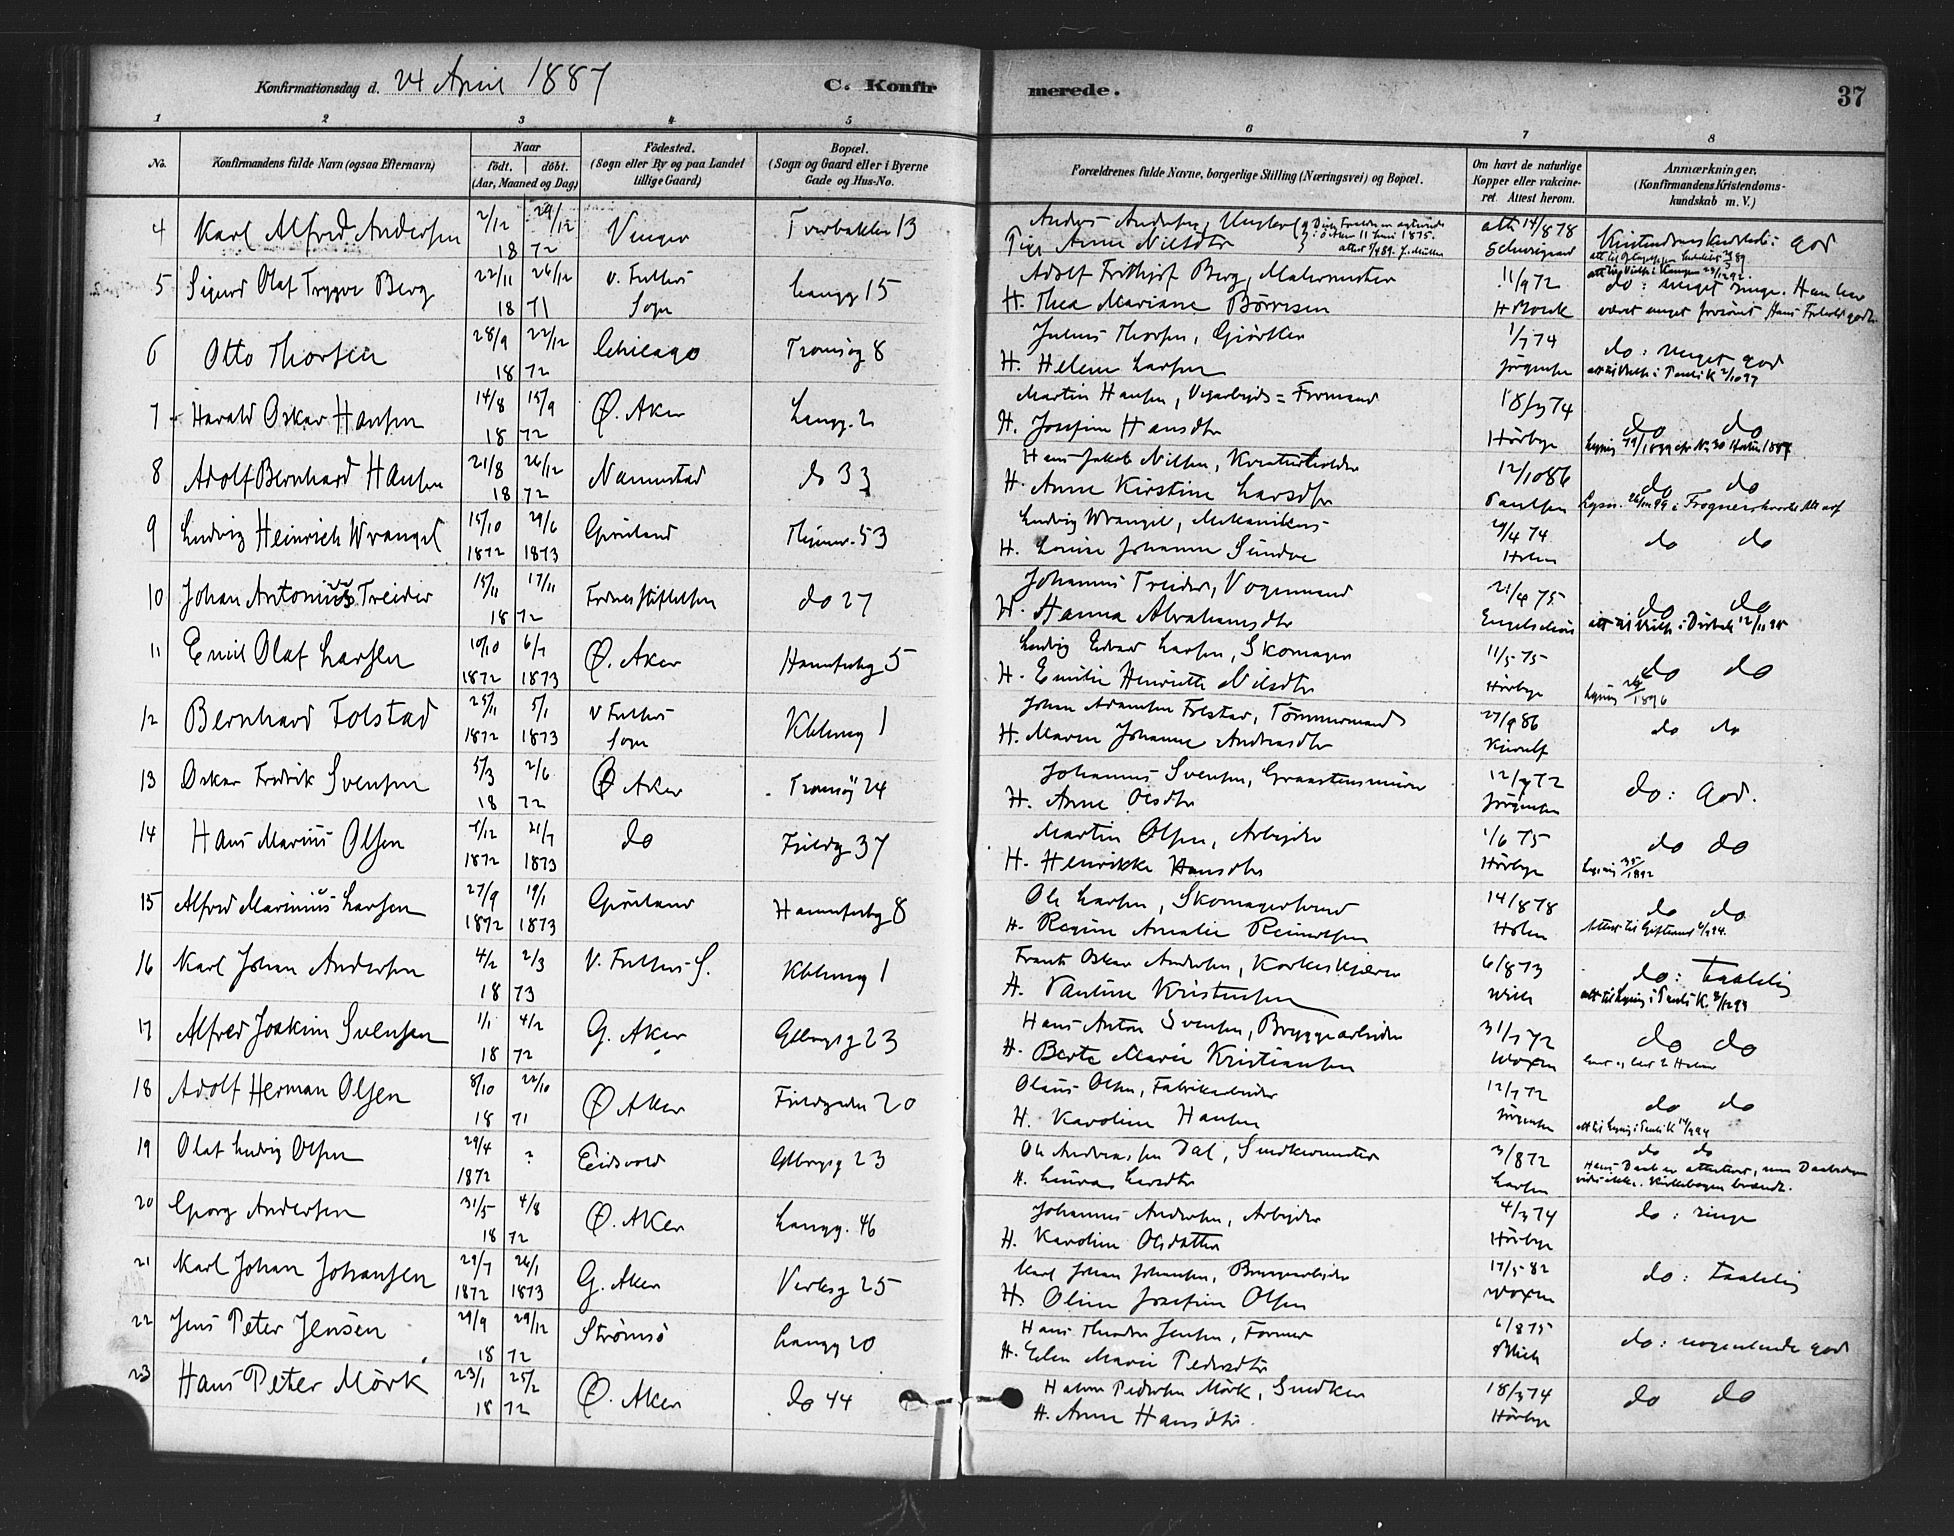 Konfirmationsdag d. 24 April 1887 C. Konfirmerede. 37
1 2 3 4 5 6 7 8
No. Konfirmandens fulde Navn (ogsaa Efternavn) Naar födt, döbt. (Aar, Maaned og Dag) Födested. (Sogn eller By og paa Landet tillige Gaard) Bopæl. (Sogn og Gaard eller i Byerne Gade og Hus-No. Forældrenes fulde Navne, borgerlige Stilling (Næringsvei) og Bopæl. Om havt de naturlige Kopper eller vakcineret. Attest herom. Anmærkninger. (Konfirmandens Kristendomskundskab m. V.)
4 Karl Alfred Andersen 2/12 29/12 18 72 13 Anders Andersen, Ungkarl
Pige Anne Nilsdtr att 14/8 78 Schweigaard Kristendomskundskab: god
5 Sigurd Olaf Trygve Berg 22/11 26/12 18 71 V. Fredriks Sogn Langg 15 Adolf Frithjof Berg, Malermester
H. Thea Mariane Börresen 11/9 72 do: meget ringe. Han har
været meget forsömt
6 Otto Thorsen 28/9 22/12 18 72 Chicago Tromsög 8 Julius Thorsen, Gjörtler
H. Helene Larsen 1/7 74 Jörgensen do: meget god
7 Harald Oskar Hansen 14/8 15/9 18 72 Ø. Aker Langg. 2 Martin Hansen, Veiarbeids=Formand
H. Josefine Hansdtr 18/3 74 Hörbye do do
8 Adolf Bernhard Hansen 21/8 26/12 18 72 Nannestad do 33 Hans Jakob Nilsen,
H. Anne Kirstine Larsdtr 12/10 86 Paulsen do do
9 Ludvig Heinrich Wrangel 15/10 29/6 1872 1873 Grönland 53 Ludvig Wrangel, Mekanikus
H. Louise Johanne Sundve 29/4 74 Holm do do
10 Johan Antonius Treider 15/11 17/11 18 72 Födselsstiftelsen do 27 Johannes Treider, Vognmand
H. Hanna Abrahamsdtr 21/4 75 do do
11 Emil Olaf Larsen 10/10 6/7 1872 1873 Ø. Aker Hammerfestg 5 Ludvig Edvard Larsen, Skomager
H. Emilie Henriette Nilsdtr 11/5 75 Hörbye do do
12 Bernhard Folstad 25/11 5/1 1872 1873 V Fredriks Sogn 1 Johan Adamsen Folstad, Tömmermand
H. Maren Johanne Andreasdtr 27/9 86 Kierulf do do
13 Oskar Fredrik Svensen 5/3 2/6 18 72 Ø Aker Tromsög 24 Johannes Svensen, Graastensmurer
H. Anne Olsdtr 12/7 72 Jörgensen do: god.
14 Hans Marius Olsen 7/12 21/7 1872 1873 do Fjeldg 37 Martin Olsen, Arbejder
H. Henrikke Hansdtr 1/6 75 Hörbye do do
15 Alfred Marinius Larsen 27/9 19/1 1872 1873 Grönland Hammerfestg 8 Ole Larsen, Skomagersvend
H. Regine Amalie Reinertsen 14/8 78 Holm do do
16 Karl Johan Andersen 4/2 2/3 18 73 V. Fredriks S. 1 Frants Oskar Andersen, Korkeskjærer
H. Pauline Kristensen 6/8 73 Wille do: taalelig
17 Alfred Joakim Svensen 1/1 4/2 18 72 G. Aker Gtborgsg 23 Hans Anton Svensen, Bryggearbeider
H. Berte Marie Kristiansen 31/7 72 Woxen do do
18 Adolf Herman Olsen 8/10 22/10 18 71 Ø Aker Fjeldgaden 20 Olaus Olsen, Fabrikarbeider
H. Karoline Hansen 12/7 72 Jörgensen do do
19 Olaf Ludvig Olsen 29/4 ? 1872 Eidsvold Gtborgsg 23 Ole Andreassen Dal, Snedkermester
H. Laura Larsdtr 3/8 72 Larsen do do
Hans Daab er attesteret, men Daabsdagen
vides ikke. Kirkebogen brændt.
20 Georg Andersen 31/5 4/8 18 72 Ø. Aker Langg. 46 Johannes Andersen, Arbejder
H. Karoline Olsdatter 4/3 74 Hörbye do: ringe
21 Karl Johan Johansen 29/7 26/1 1872 1873 G. Aker Verksg 25 Karl Johan Johansen, Bryggearbejder
H. Oline Josefine Olsen 17/5 82 Woxen do: taalelig
22 Jens Peter Jensen 29/9 29/12 18 72 Strömsö Langg 20 Hans Theodor Jensen, Former
H. Elen Marie Pedersdtr 6/8 75 Blich do: nogenlunde god
23 Hans Peter Mörk 23/1 25/2 18 72 Ø. Aker do 44 Halvor Pedersen Mörk, Snedker
H. Anne Hansdtr. 18/3 74 Hörbye do do